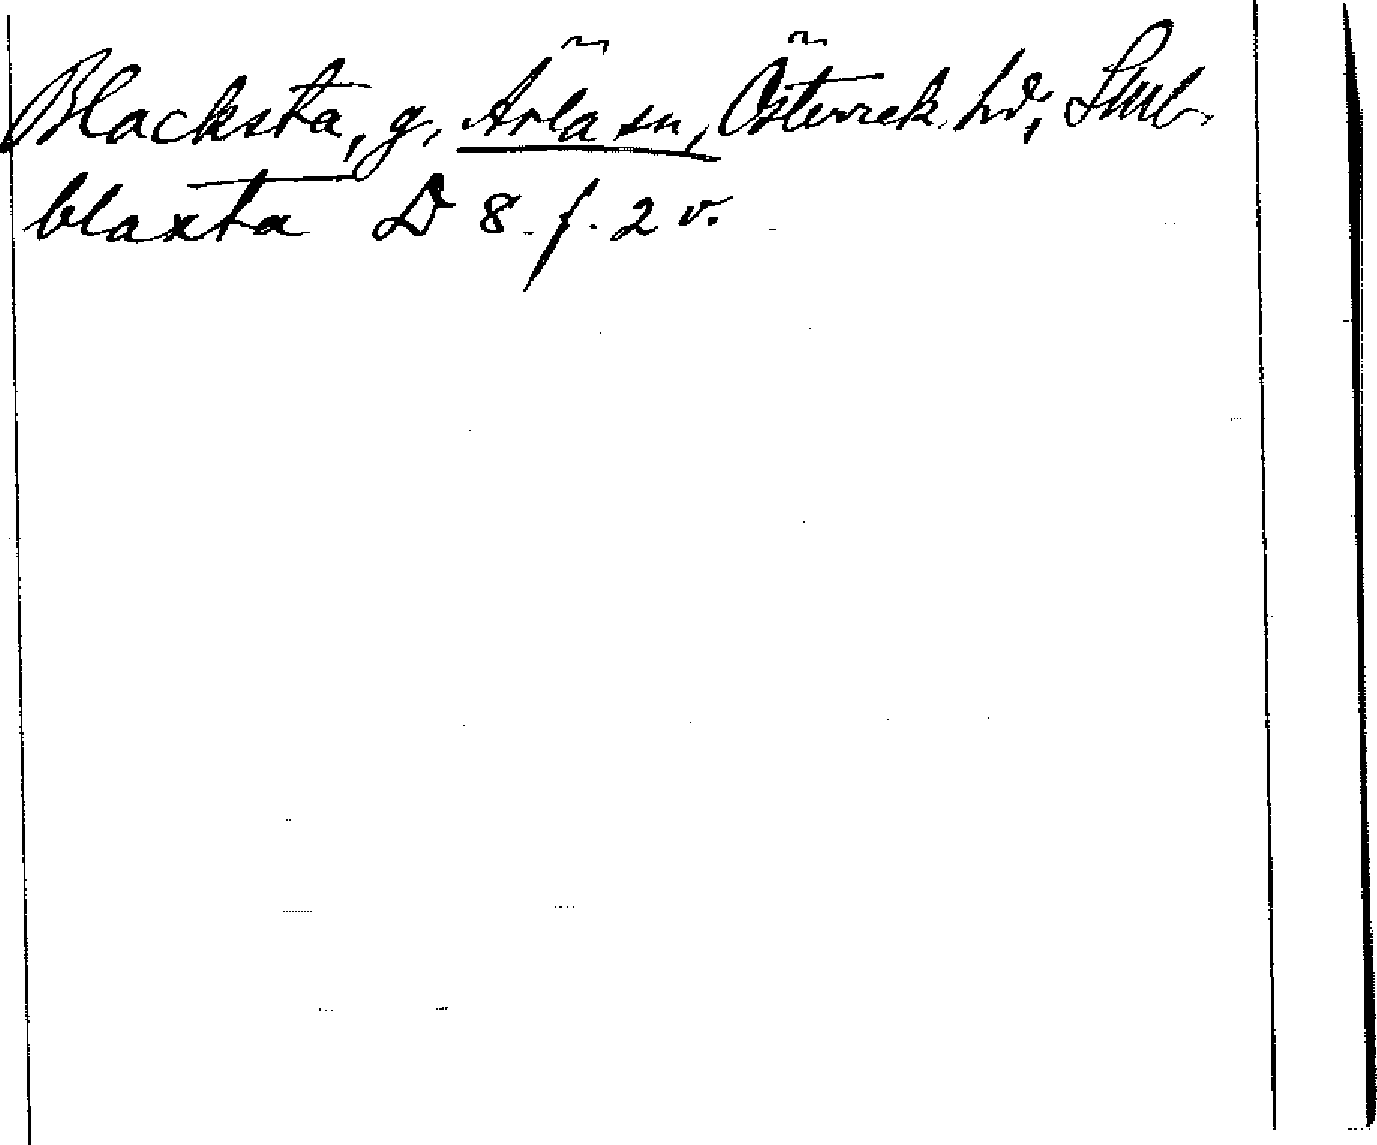 Blacksta, g, Ärla sn, Österrek. hd, Sml.
blaxta D 8 f. 2 v.